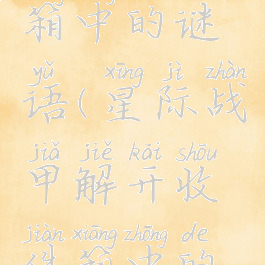 箱中的谜
yǔ xīng jì zhàn
语(星际战
jiǎ jiě kāi shōu
甲解开收
jiàn xiāng zhōng de
件箱中的